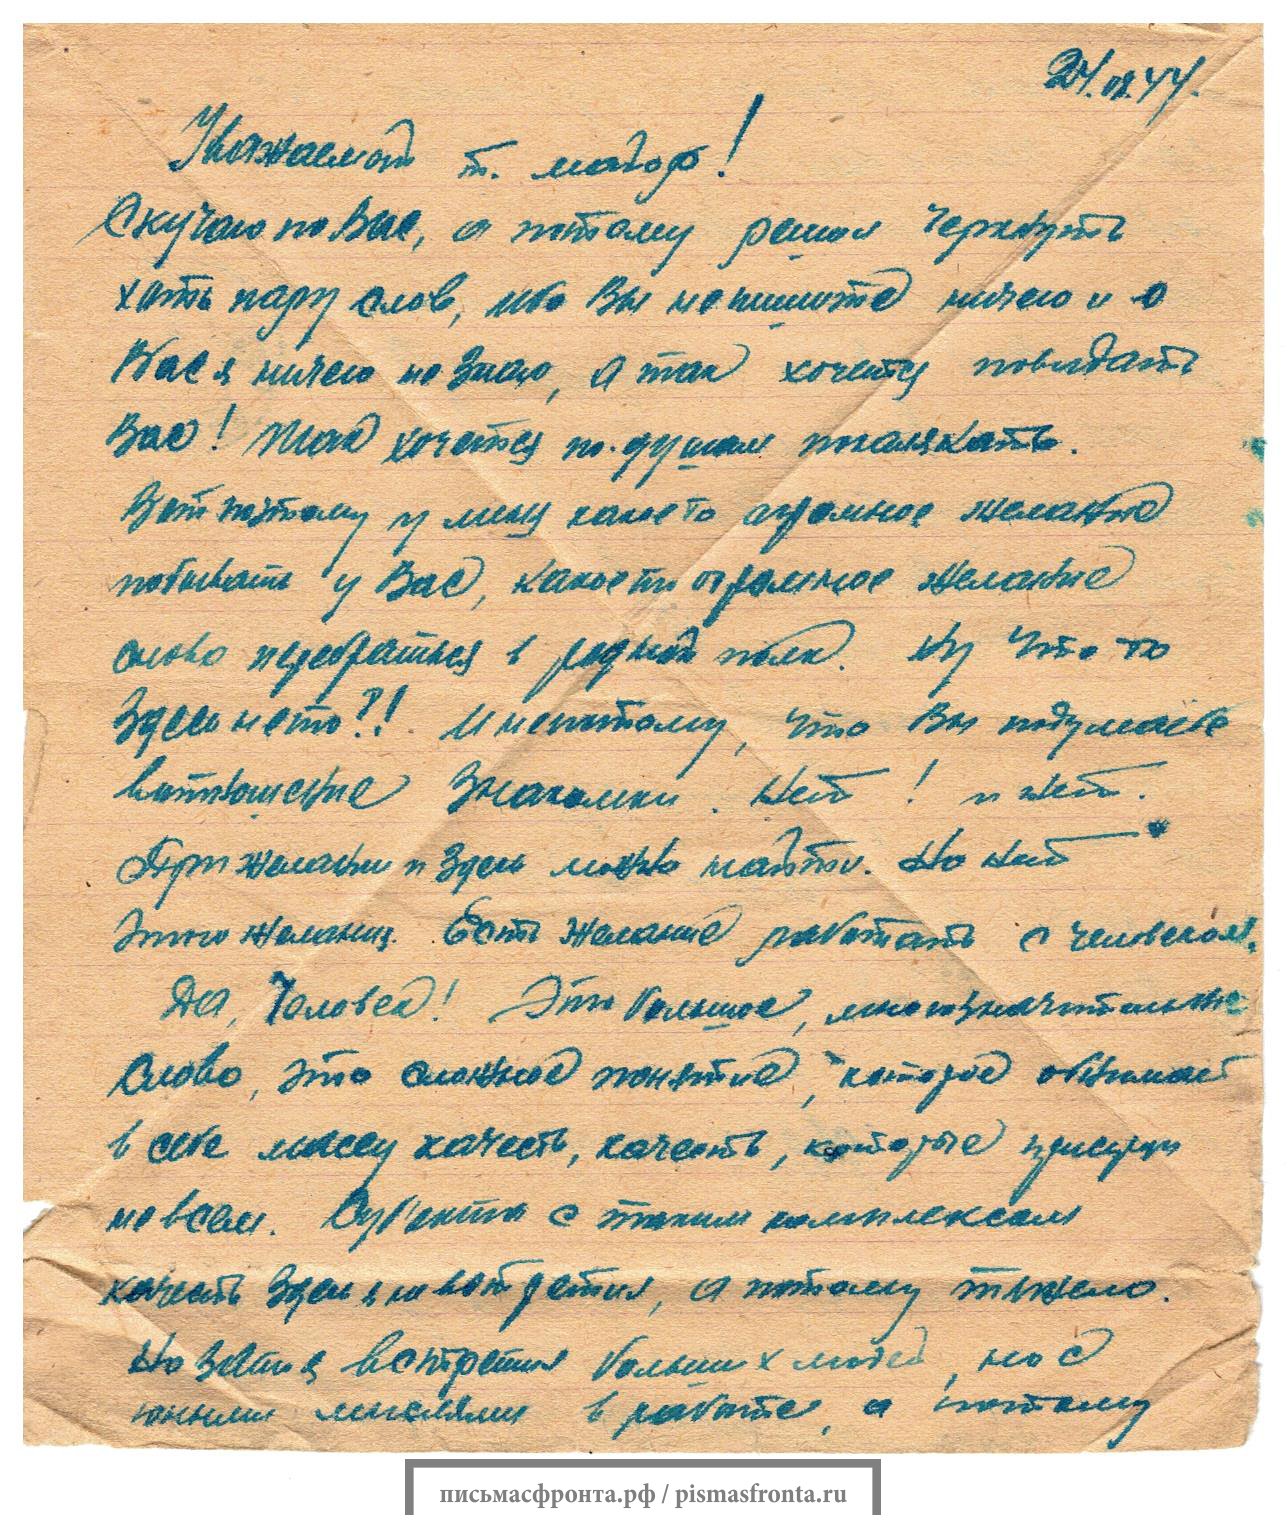 24.08.44.
Уважаемый т. майор!
Скучаю по Вас, а потому решил черкнуть
хоть пару слов, ибо Вы не пишите ничего и о
Вас я ничего не знаю, а так хочется повидать
Вас! Так хочется по-душам покалякать.
Вот поэтому у меня какое то огромное желание
побывать у Вас, какое то огромное желание
снова перебраться в родной полк. Ну что то
здесь не то?! И не потому, что Вы подумаете
в отношение знакомки. Нет! и нет.
При желании и здесь можно найти. Но нет
этого желания. Есть желание работать с человеком.
Да, Человек! Это большое, многозначительное
слово, это сложное понятие, которое обнимает
в себе массу качеств, качеств, которые присущи
не всем. Субъекты с таким комплексом
качеств здесь я не встретил, а потому тяжело.
Но зато я встретил больших людей, но с
юными мыслями в работе, а потому
письмасфронта.рф / pismasfronta.ru